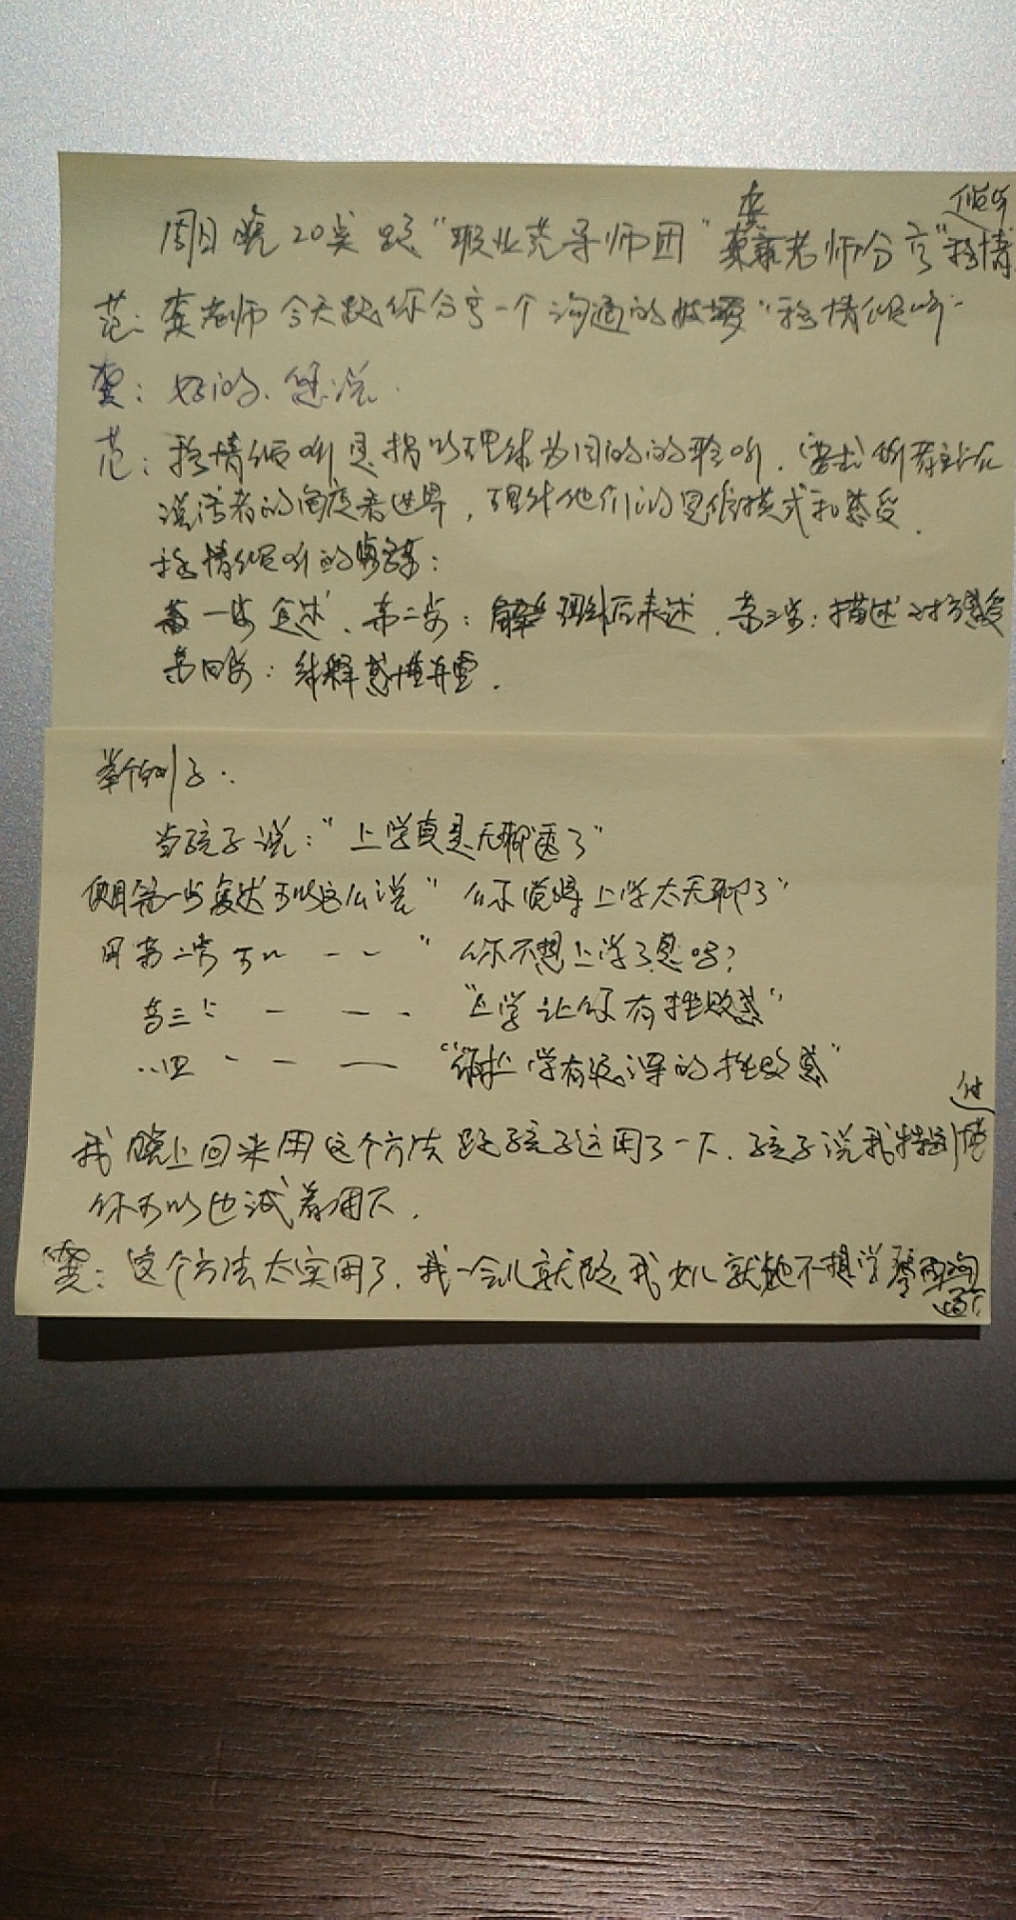 周日晚20点跟“职业范导师团”龚老师分享“移情倾听
范：龚老师今天跟你分享一个沟通的技巧“移情倾听”
龚：好的、您说.
范：移情倾听是指以理解为目的的聆听．要求听者站在
说话者的角度看世界，理解他们的思维模式和感受．
移情倾听的步骤：
第一步复述、第二步：理解后表述．第三步：描述感受
第四步：解释感情并重．
举个例子：
当孩子说：“上学真是无聊透了”
使用第一步复述可以这么说“你觉得上学太无聊了”
用第二步可以－－“你不想上学了是吗？
第三步－－－“上学让你有挫败感”
‥四－－－“你对上学有很深的挫败感”
我晚上回来用这个方法跟孩子运用了一下．孩子说我特别懂他
你可以也试着用下．
龚：这个方法太实用了．我一会儿就跟我女儿就她不想学琴再沟通下